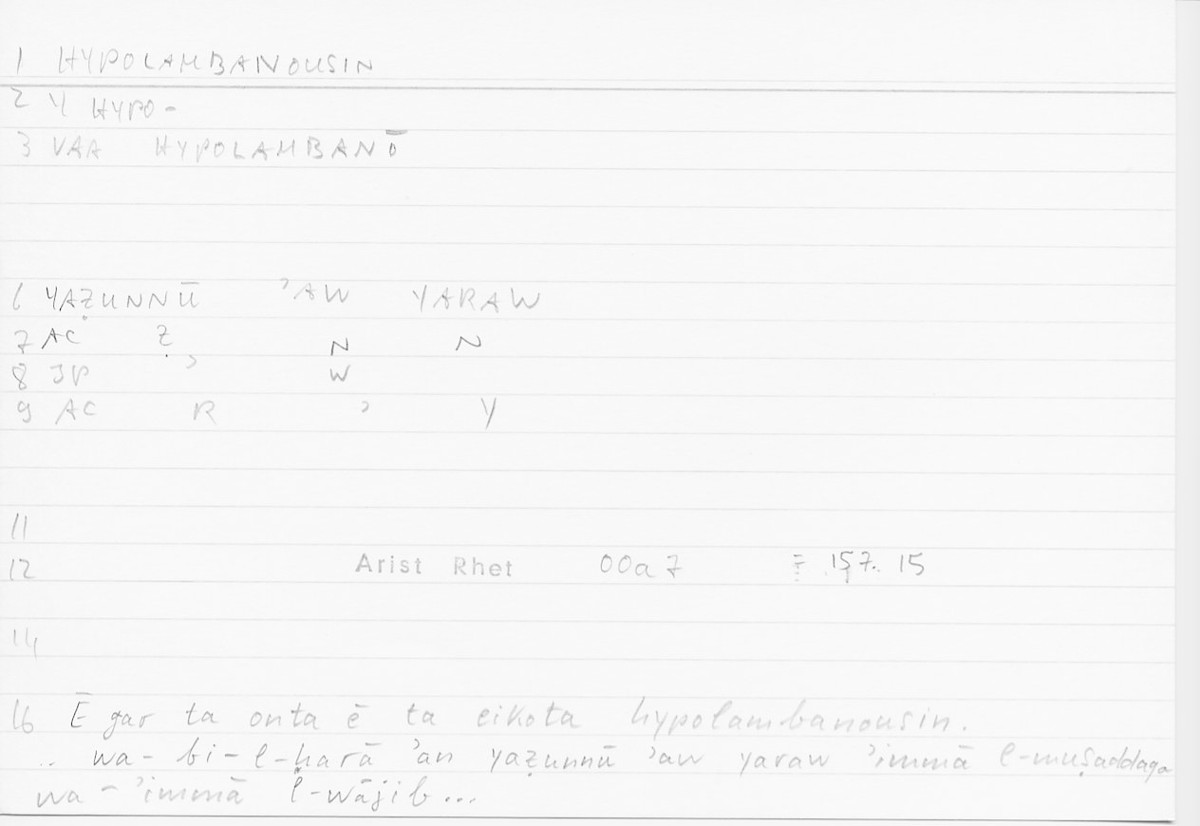 1 HYPOLAMBANOUSIN
2 Y HYPO-
3 VAA HYPOLAMBANŌ
6 YAẒUNNŪ ʾAW YARAW
7 AC Ẓ N N
8 JP ʾ W
9 AC R ʾ Y
11
12 Arist Rhet 00a7 = 157.15
14
16 Ē gar ta onta ē ta eikota hypolambanousin.
.. wa-bi-l-ḥarā ʾan yaẓunnū ʾaw yaraw ʾimmā l-muṣaddaqa
wa-ʾimmā l-wājib...